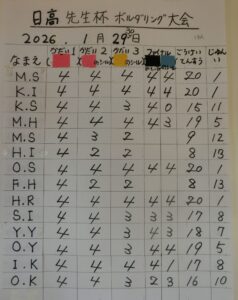 日高 先生杯 ボルダリング大会
2026. 1月 29日
なまえ かだい1 かだい2 かだい3 ファイナル ごうけい てんすう じゅんい
M.S 4 4 4 4 4 20 1
K.I 4 4 4 4 4 20 1
K.S 4 4 3 4 0 15 11
M.H 4 4 4 4 3 19 5
M.S 4 3 2 9 12
H.I 4 2 2 8 13
O.S 4 4 4 4 4 20 1
F.H 4 2 2 8 13
H.R 4 4 4 4 4 20 1
S.I 4 4 3 3 3 17 8
Y.Y 4 4 3 4 3 18 7
O.Y 4 4 3 4 4 19 5
I.K 4 4 4 4 1 17 8
O.K 4 4 3 2 3 16 10